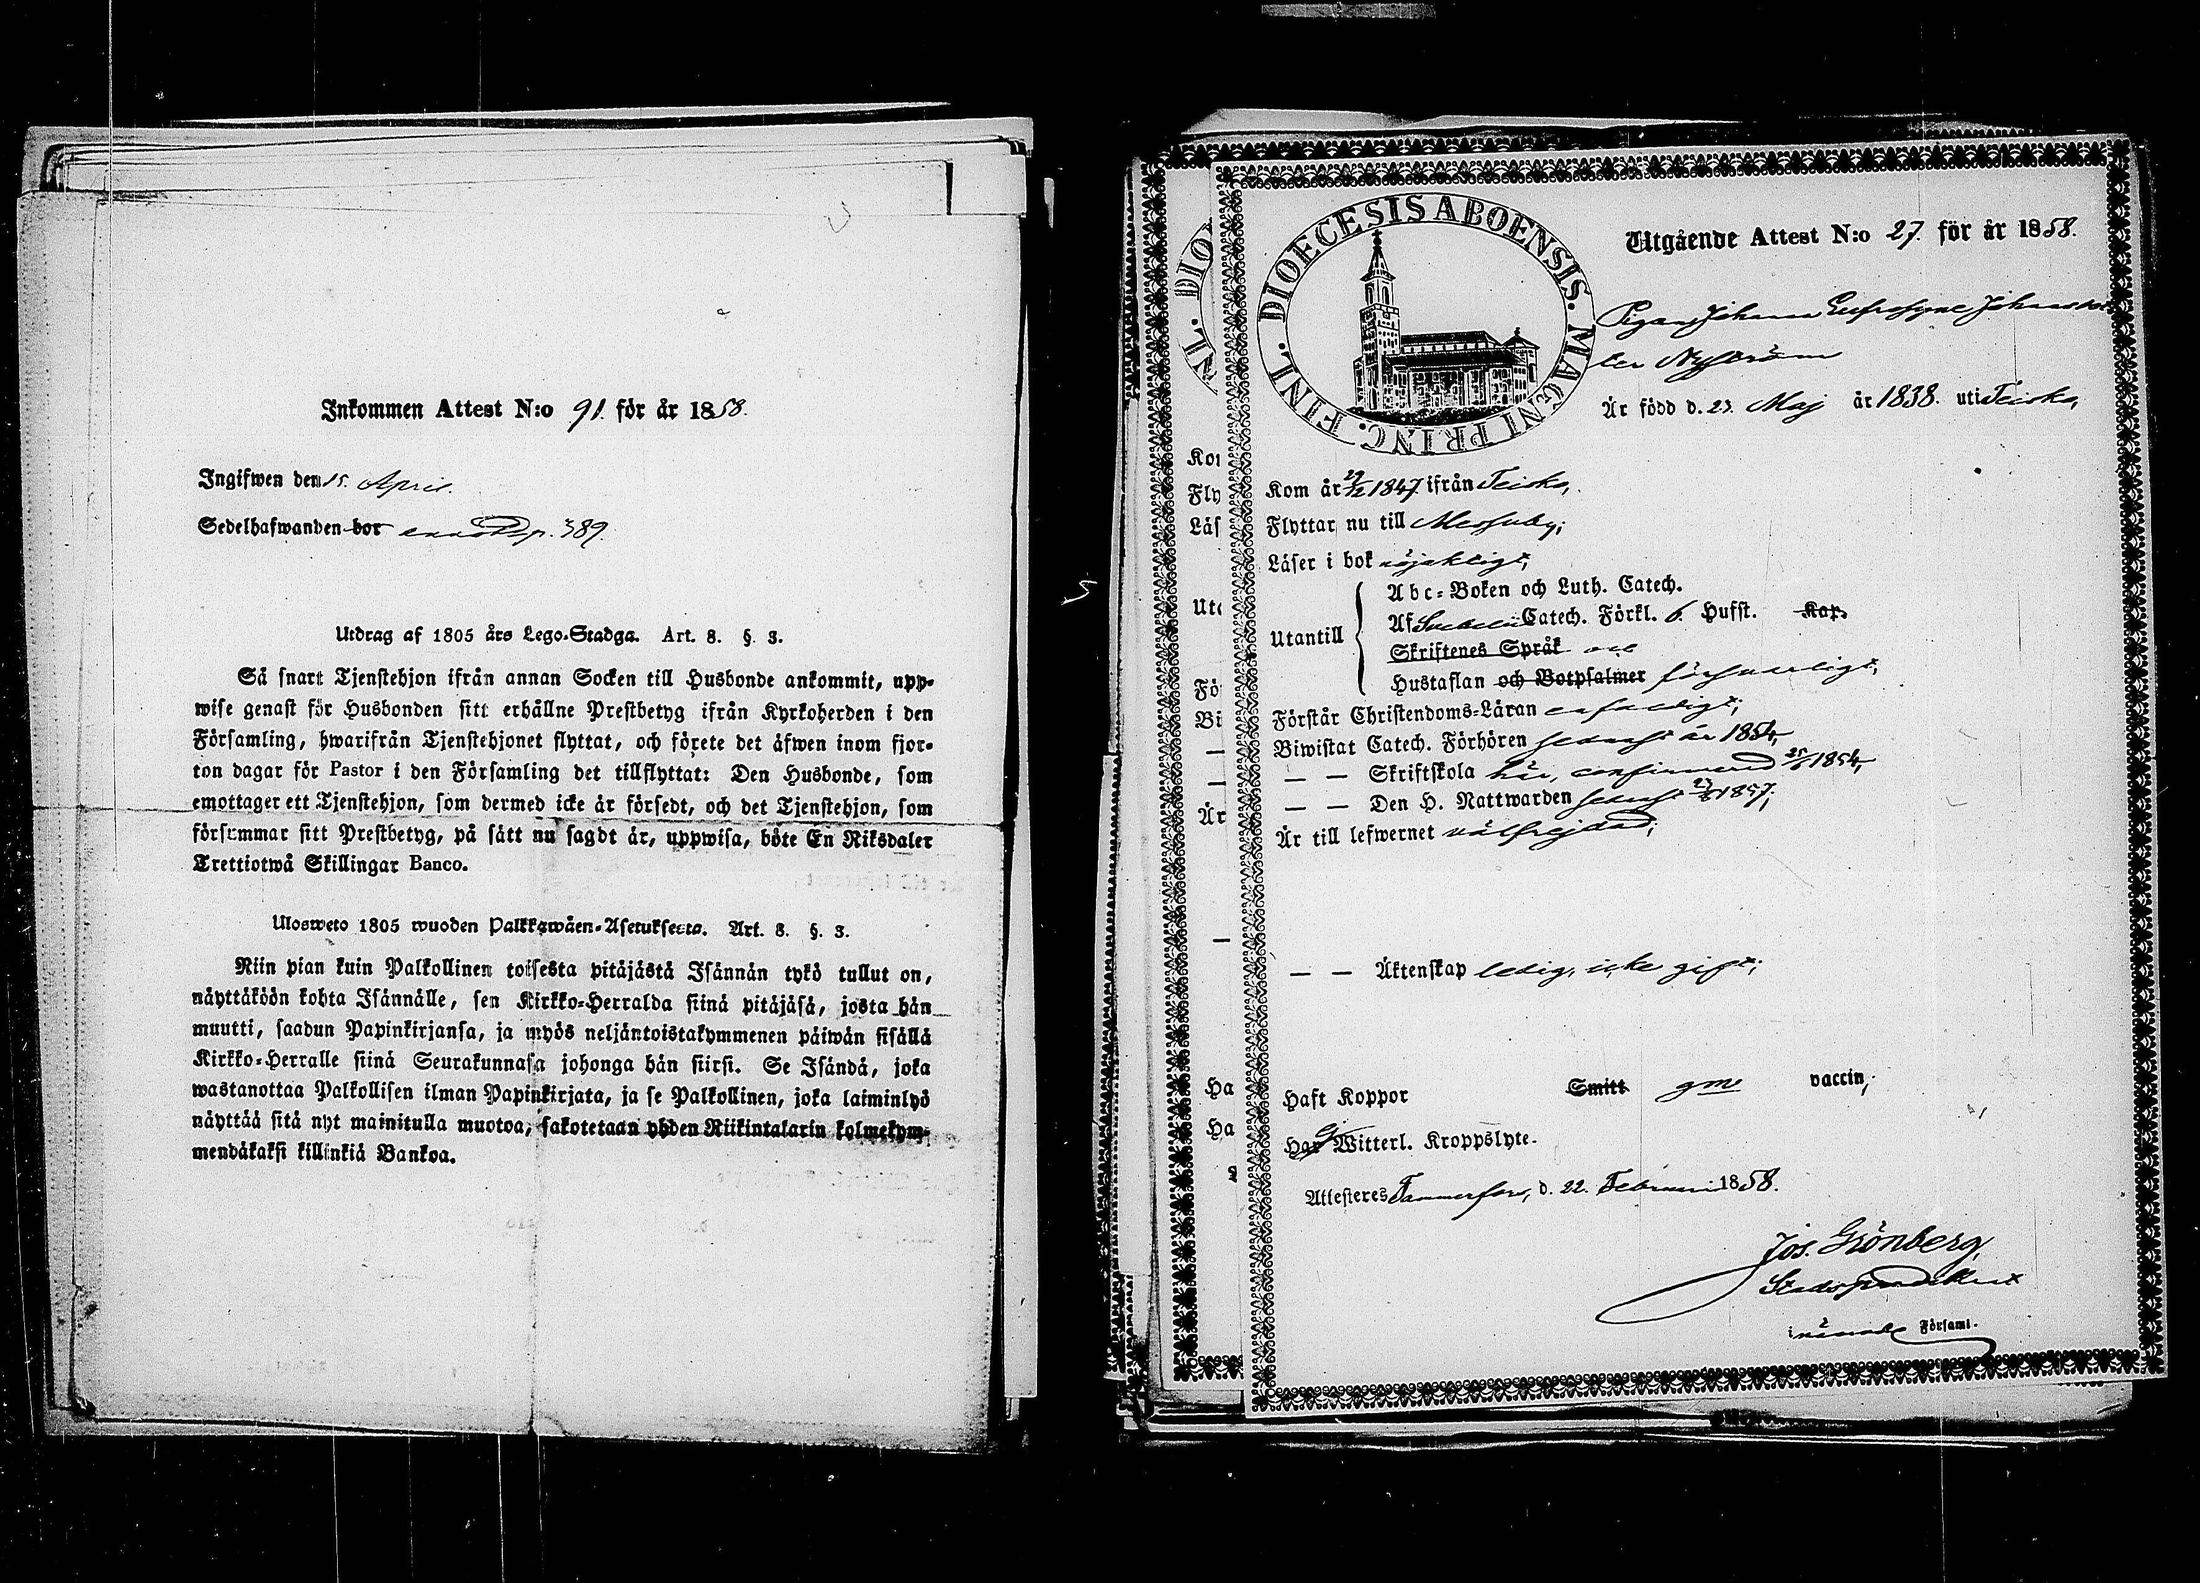 Inkommen Attest N:o 91. för år 1858.
Ingifwen den 15. April.
Sedelhafwanden bor p. 389.
Utdrag af 1805 års Lego-Stadga. Art. 8. §. 3.
Så snart Tjenstehjon ifrån annan Socken till Husbonde ankommit, upp-
wise genast för Husbonden sitt erhållne Prestbetyg ifrån Kyrkoherden i den
Församling, hwarifrån Tjenstehjonet flyttat, och förete det äfwen inom fjor-
ton dagar för Pastor i den Församling det tillflyttat: Den Husbonde, som
emottager ett Tjenstehjon, som dermed icke är försedt, och det Tjenstehjon, som
försummar sitt Prestbetyg, på sätt nu sagdt är, uppwisa, böte En Riksdaler
Trettiotwå Skillingar Banco.
Ulosweto 1805 wuoden Palkkawäen-Asetuksesta. Art. 8. §. 3.
Niin pian kuin Palkollinen toisesta pitäjästä Isännän tykö tullut on,
näyttäköön kohta Isännälle, sen Kirkko-Herralda siinä pitäjäsä, josta hän
muutti, saadun Papinkirjansa, ja myös neljäntoistakymmenen päiwän sisällä
Kirkko-Herralle siinä Seurakunnasa johonga hän siirsi. Se Isändä, joka
wastanottaa Palkollisen ilman Papinkirjata, ja se Palkollinen, joka laiminlyö
näyttää sitä nyt mainitulla muotoa, sakotetaan yhden Riikintalarin kolmekym-
mendäkaksi killinkiä Bankoa.
DIOECESIS ABOENSIS. MAGNI PRINC. FINL.
Utgående Attest N:o 27. för år 1858.
Pigan Johanna Eufrosyne Johansdot
ter Nyström
Är född d. 23. Maj år 1838. uti Teisko,
Kom år 29/12 1847. ifrån Teisko,
Flyttar nu till Messuby;
Läser i bok nöjaktigt,
Utantill
Abc-Boken och Luth. Catech.
Af Svebelii Catech. Förkl. 6. Hufst. Kap.
Skriftenes Språk
Hustaflan och Botpsalmer försvarligt,
Förstår Christendoms-Läran enfaldigt;
Biwistat Catech. Förhören sednast år 1854,
— — Skriftskola här, confirmerad 25/6 1854,
— — Den H. Nattwarden sednast 1857;
Är till lefwernet välfrejdad;
— — Äktenskap ledig, icke gift;
Haft Koppor Smitt gm vaccin,
Har Ej Witterl. Kroppslyte.
Attesteres Tammerfors, d. 22. Februari 1858.
Jos. Grönberg,
Stadspredikant
i nämnde Församl.